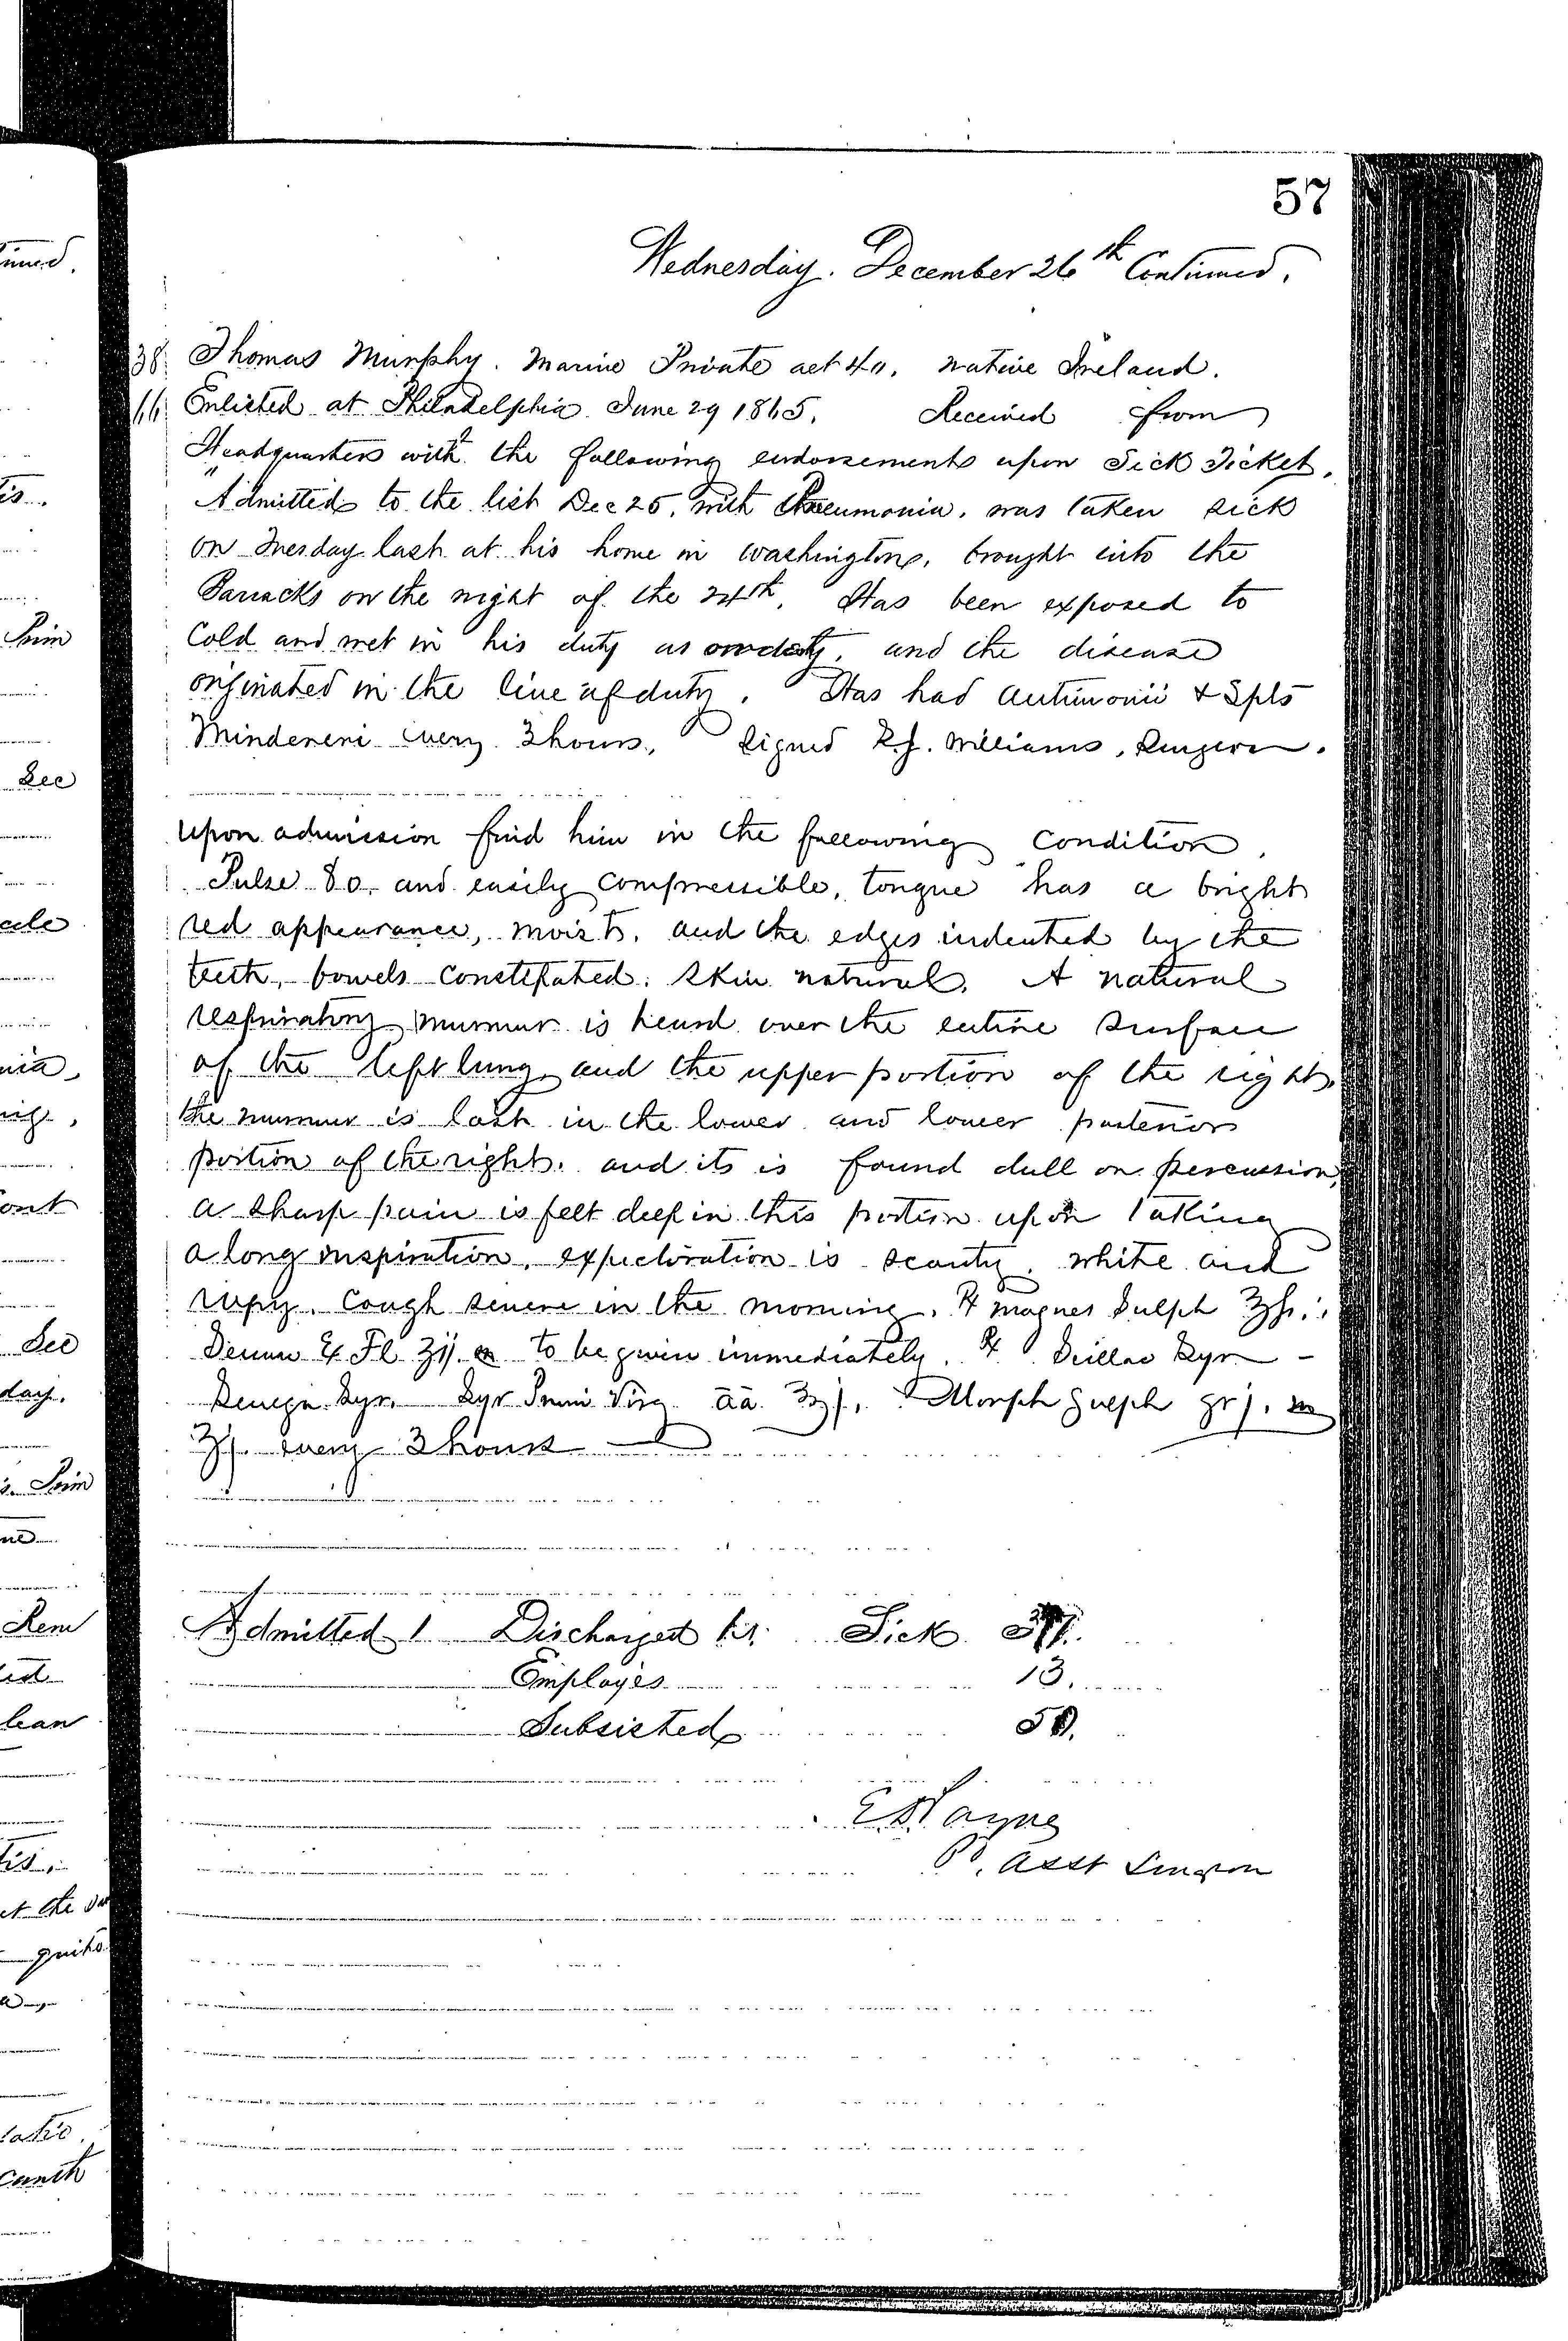 57
Wednesday. December 26th Continued.
38 Thomas Murphy. Marine Private aet 40. native Ireland.
66 Enlisted at Philadelphia June 29 1865. Received from
Headquarters with the following endorsements upon Sick Ticket.
"Admitted to the list Dec 25, with Pneumonia. was taken sick
on Tuesday last at his home in Washington, brought into the
Barracks on the night of the 24th. Has been exposed to
Cold and wet in his duty as and the disease
originated in the line of duty. Has had Antimonii & Spts
Mindereri every 3 hours. Signed R.J. Williams, Surgeon.
Upon admission find him in the following condition,
Pulse 80. and easily compressible, tongue has a bright
red appearance, moist, and the edges indented by the
teeth, bowels constipated. skin natural. A natural
respiratory murmur is heard over the entire surface
of the left lung, and the upper portion of the right,
the murmur is lost in the lower and lower posterior
portion of the right. and its is found dull on percussion,
a sharp pain is felt deep in this portion upon taking
a long inspiration, expectoration is scanty, white and
ropy. Cough severe in the morning. ℞ Magnes Sulph ℥ss.
Sennae Ex Fl ʒij. m to be given immediately. ℞ Scillae Syr -
Senega Syr. Syr Pruni Virg āā ℥j. Morph Sulph grj. m
ʒj. every 3 hours
Admitted 1 Discharged Sick 37.
Employés 13.
Subsisted 50.
Payne
P. Asst Surgeon
inued.
tis.
Prim
Dec
nia,
ont
Dec
day.
Prim
Rem
lean
tis.
et the
quite